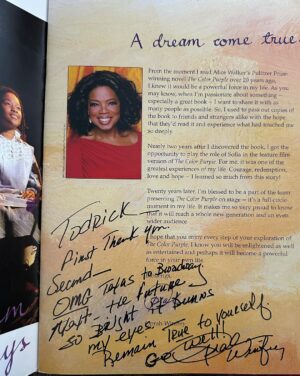 A dream come true
From the moment I read Alice Walker's Pulitzer Prize-
winning novel The Color Purple over 20 years ago,
I knew it would be a powerful force in my life. As you
may know, when I'm passionate about something –
especially a great book – I want to share it with as
many people as possible. So, I used to pass out copies of
the book to friends and strangers alike with the hope
that they'd read it and experience what had touched me
so deeply.
Nearly two years after I discovered the book, I got the
opportunity to play the role of Sofia in the feature film
version of The Color Purple. For me, it was one of the
greatest experiences of my life. Courage, redemption,
love and hope – I learned so much from this story!
Twenty years later, I'm blessed to be a part of the team
presenting The Color Purple on stage – it's a full circle
moment in my life. It makes me so very proud to know
that it will reach a whole new generation and an even
wider audience.
I hope that you enjoy every step of your exploration of
The Color Purple. I know you will be enlightened as well
as entertained and perhaps it will become a powerful
force in your own life
Todrick
First Thank you
Second
OMG Texas to Broadway
Next – The Future
So Bright it burns
my eyes
Remain True to yourself
Oprah Winfrey
m
ys